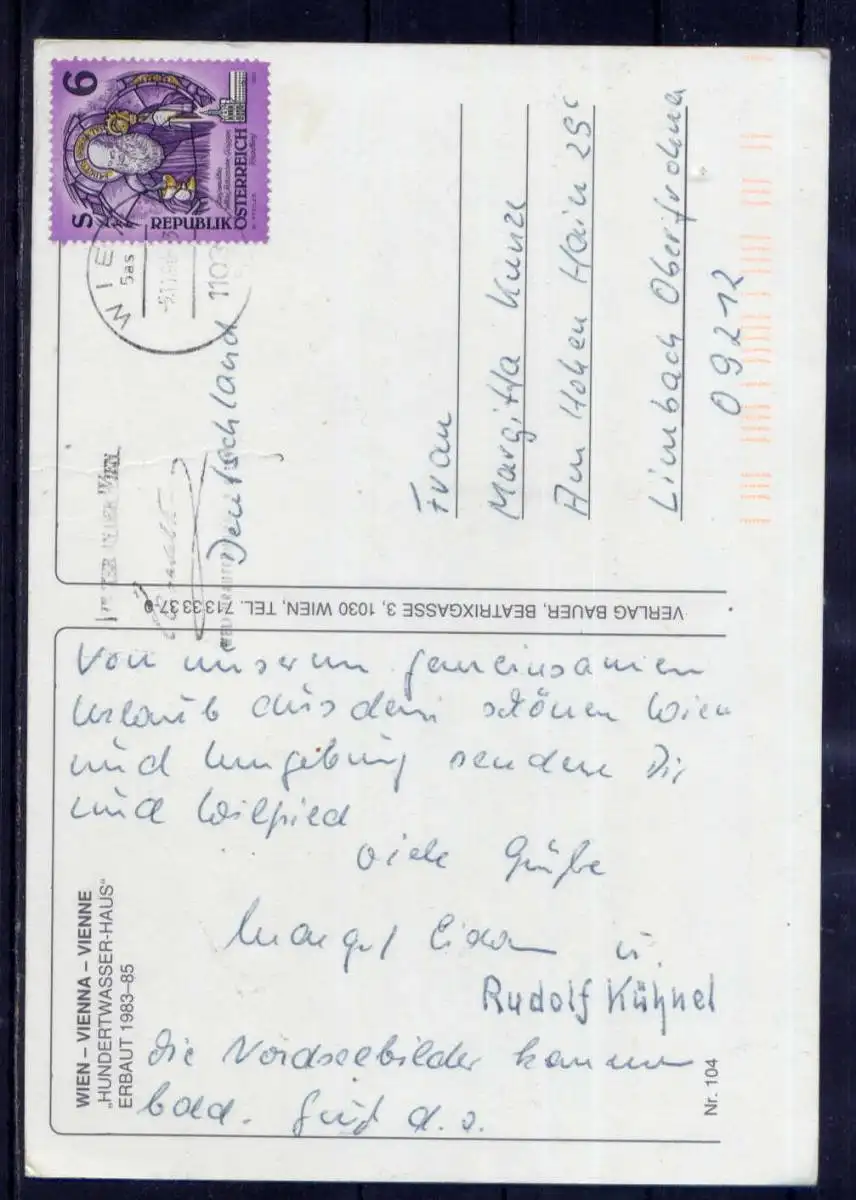 S 6
REPUBLIK
ÖSTERREICH
WIE
1103
Deutschland
Frau
Margitta Kunze
Am Hohen Hain 25c
Limbach Oberfrohna
09212
VERLAG BAUER, BEATRIXGASSE 3, 1030 WIEN, TEL. 713 33 37-0
Von unserem gemeinsamen
Urlaub aus dem schönen Wien
und Umgebung senden Dir
und Wilfried
viele Grüße
Margot u.
Rudolf Kühnel
Die Nordseebilder kommen
bald. Gruß d. o.
WIEN – VIENNA – VIENNE
„HUNDERTWASSER-HAUS"
ERBAUT 1983–85
Nr. 104